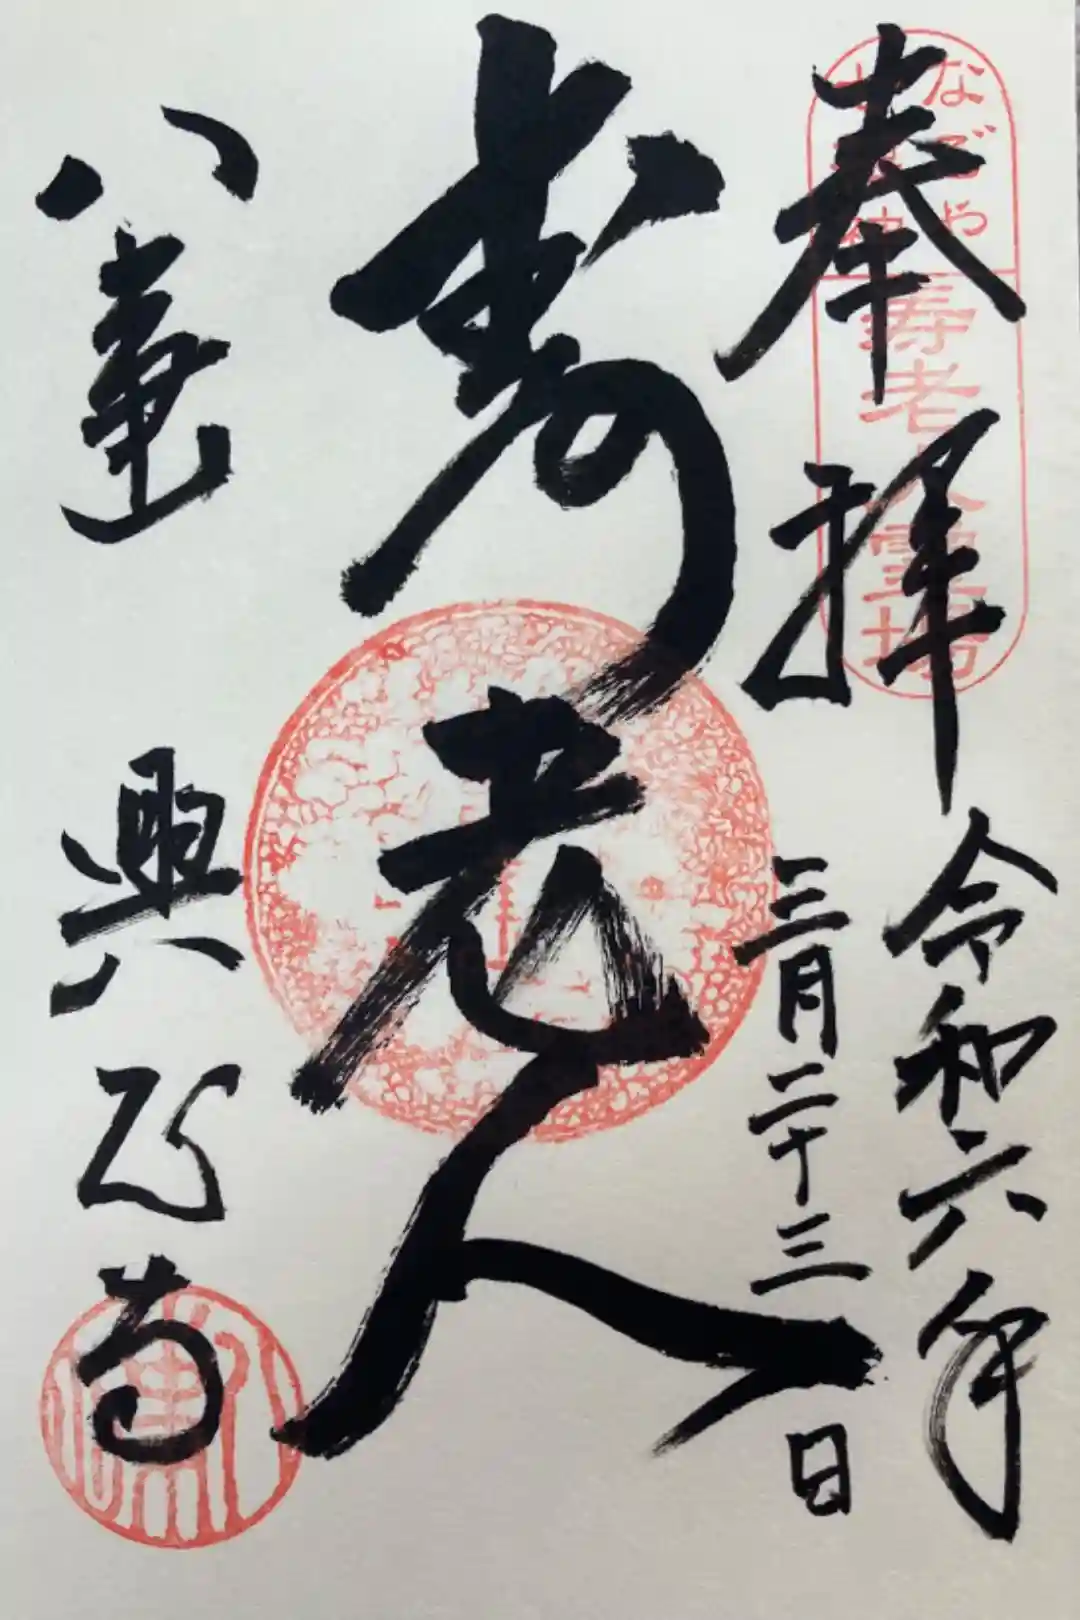 奉拝
令和六年
三月二十三日
寿老人
八事山
興正寺
なごや
七福神
寿老人霊場